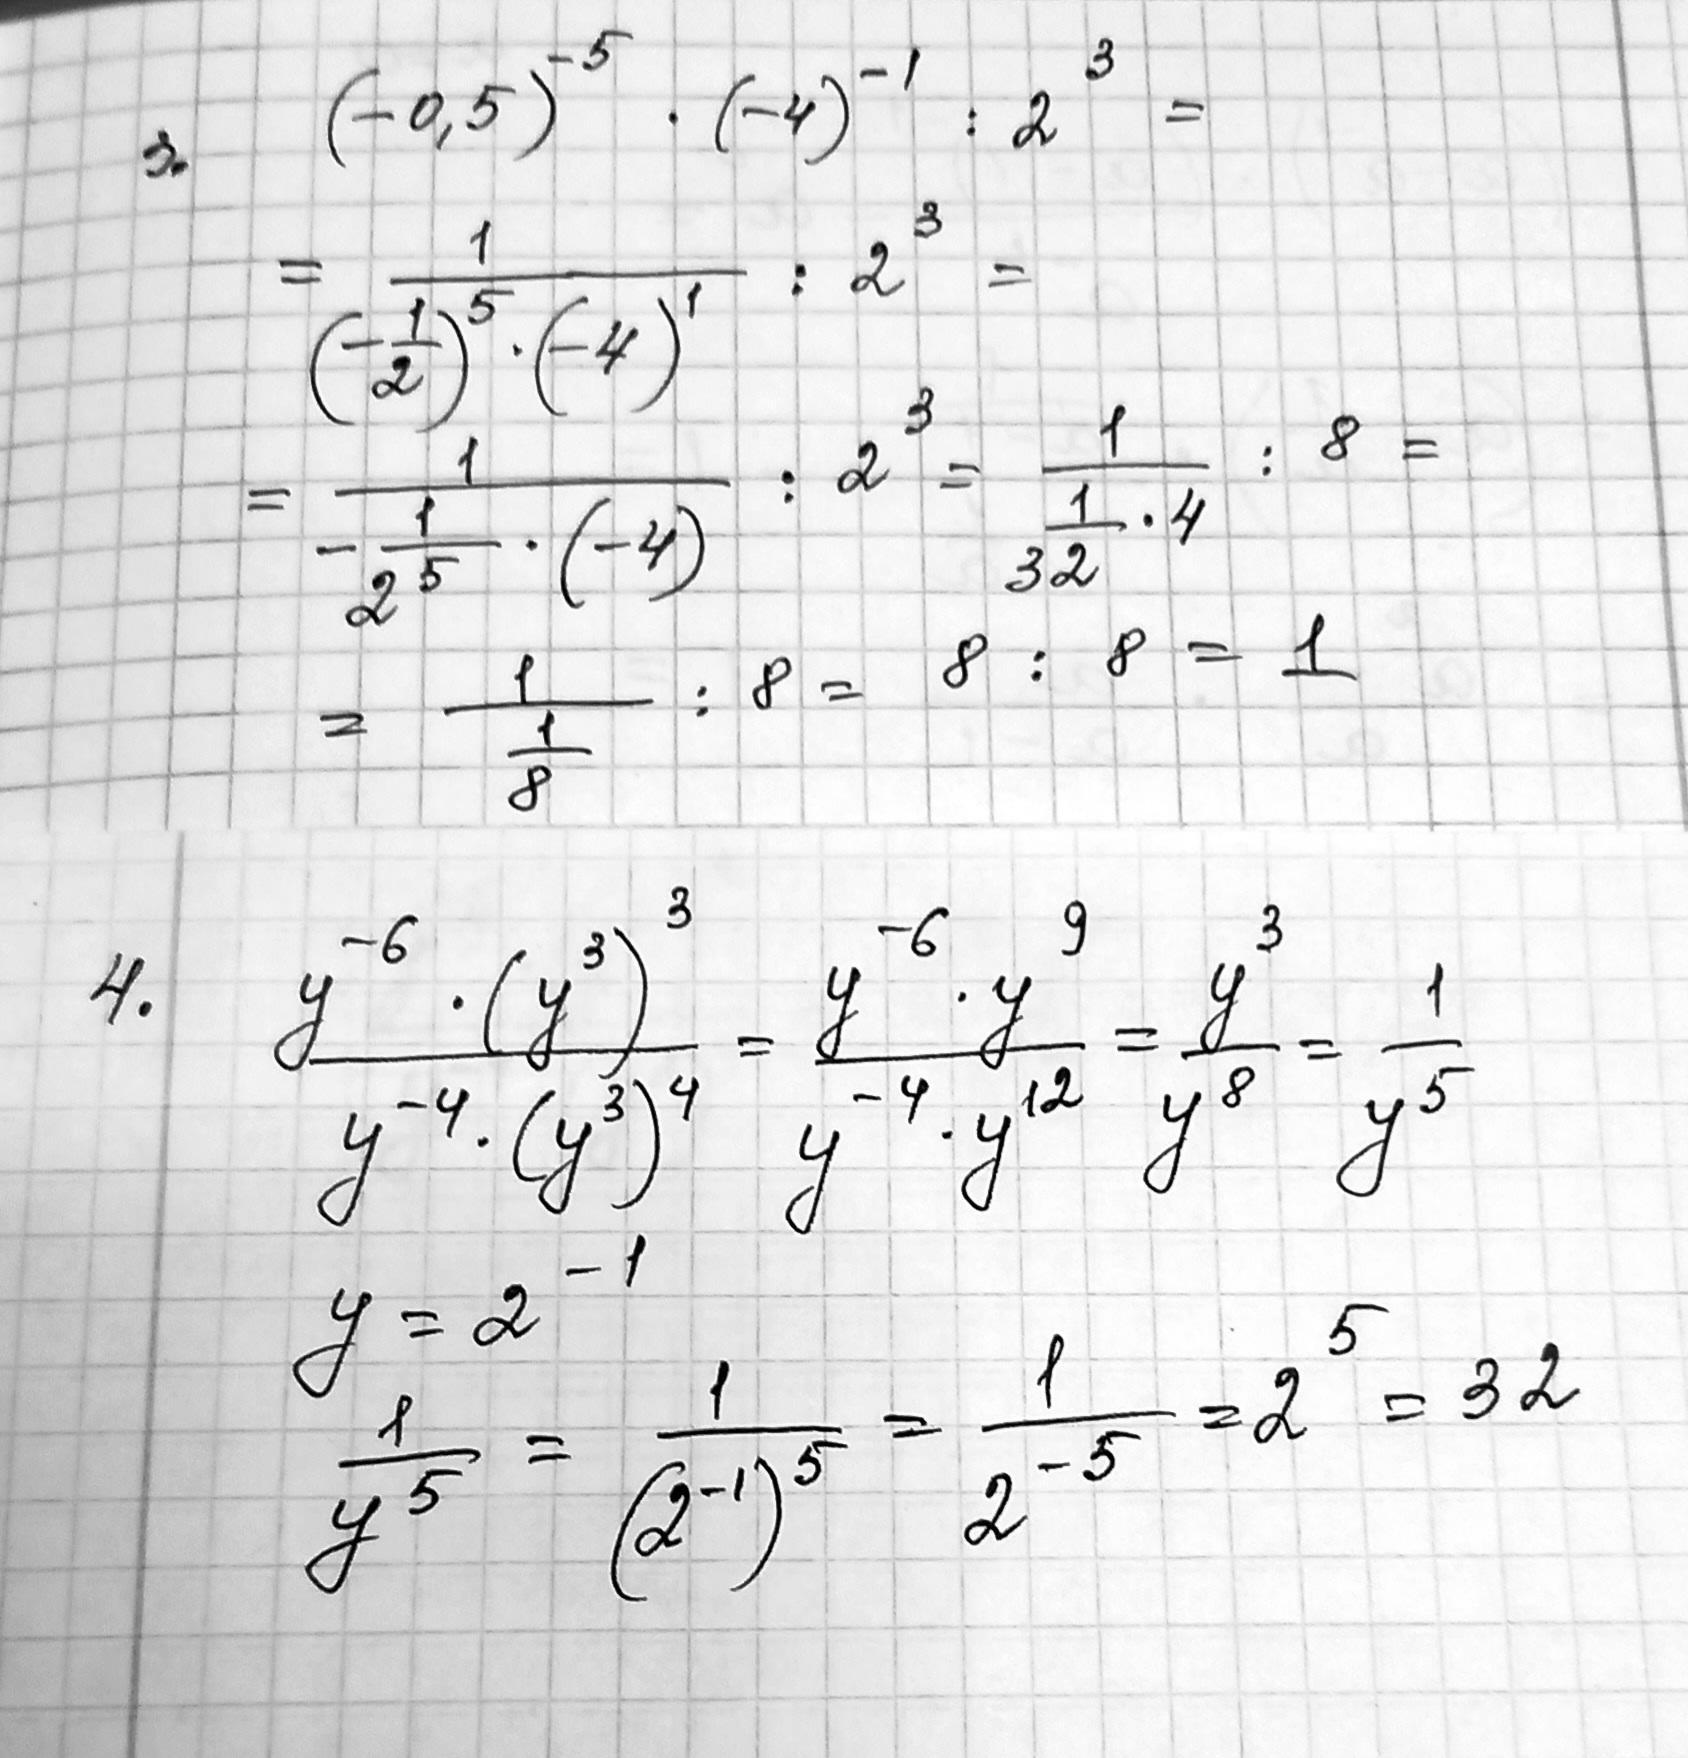 3. (-0,5)^-5 · (-4)^-1 : 2^3 =
= 1/((-1/2)^5 · (-4)^1) : 2^3 =
= 1/(-1/2^5 · (-4)) : 2^3 = 1/(1/32 · 4) : 8 =
= 1/(1/8) : 8 = 8 : 8 = 1
4. (y^-6 · (y^3)^3)/(y^-4 · (y^3)^4) = (y^-6 · y^9)/(y^-4 · y^12) = y^3/y^8 = 1/y^5
y = 2^-1
1/y^5 = 1/(2^-1)^5 = 1/2^-5 = 2^5 = 32